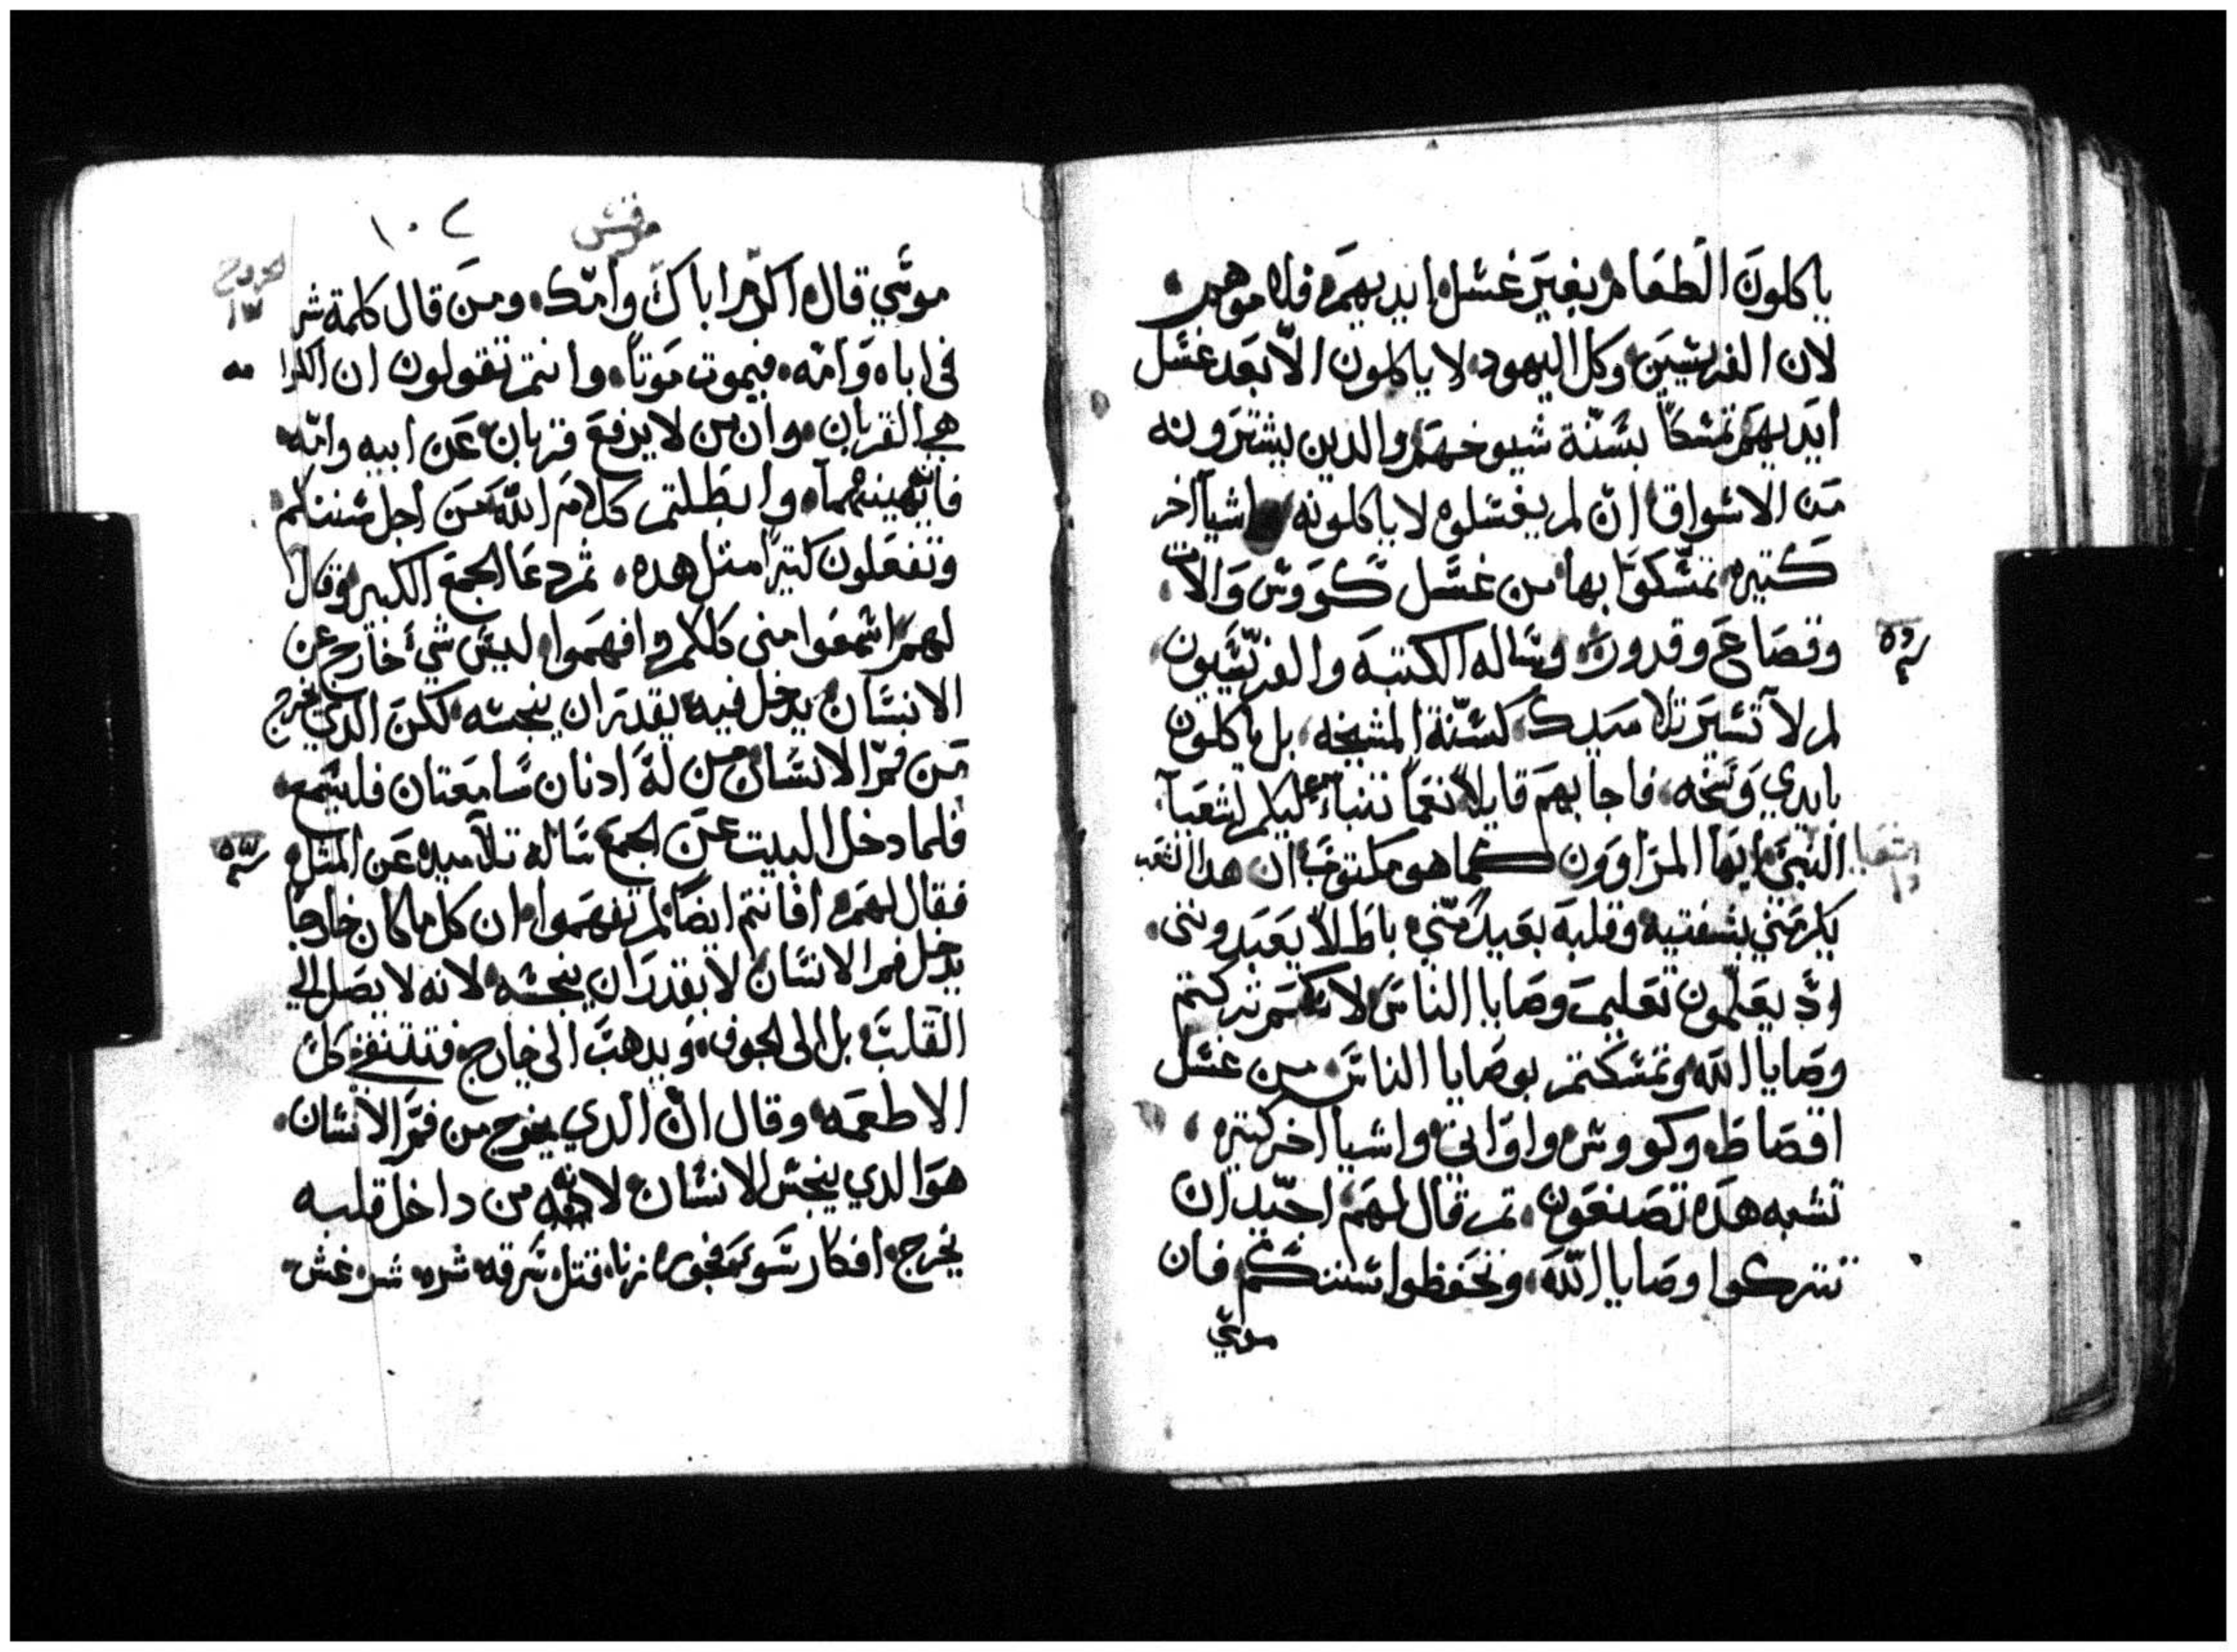 ياكلون الطعام بغير غسل ايديهم فلاموهم
لان الفريسيين وكل اليهود لا ياكلون الا بعد غسل
ايديهم تمسكا بسنة شيوخهم والدين يشترونه
من الاسواق ان لم يغسلوه لا ياكلونه واشيا اخر
كتيره تمسكوا بها من غسل كووس والات
وقصاع وقدور وساله الكتبه والفريسيون
لم لا تسير تلاميدك كسنة المشيخه بل ياكلون
بايدي وسخه فاجابهم قايلا نعما تنباء عليكم اشعيا
النبي ايها المراوون كما هو مكتوب ان هدا الشعب
يكرمني بشفتيه وقلبه بعيد مني باطلا يعبدونني
اد يعلمون تعليم وصايا الناس لانكم تركتم
وصايا الله وتمسكتم بوصايا الناس من غسل
اقصاط وكووس واواني واشيا اخر كتيره
تشبه هده تصنعون تم قال لهم اجيد ان
تتركوا وصايا الله وتحفظوا سننكم فان
موسي
مرقس
١٠٢
موسي قال اكرم اباك وامك ومن قال كلمة شر
في اباه وامه فيموت موتا وانتم تقولون ان
هي القربان وان من لا يرفع قربان عن ابيه وامه
وابطلتم كلام الله من اجل سننكم
وتفعلون كتيرا متل هده تم دعا الجمع الكبير وقال
لهم اسمعوا مني كلكم وافهموا ليس شي خارج عن
الانسان يدخل فيه يقدر ان ينجسه لكن الدي يخرج
من فم الانسان من له ادنان سامعتان فليسمع
فلما دخل البيت عن الجمع ساله تلاميده عن المتل
فقال لهم افانتم ايضا لم تفهموا ان كل ما كان خارجا
يدخل فم الانسان لا يقدر ان ينجسه لانه لا يصل الي
القلب بل الى الجوف ويدهب الى خارج فتنقي كل
الاطعمه وقال ان الدي يخرج من فم الانسان
هو الدي ينجس الانسان لانه من داخل قلبه
يخرج افكار سو فجوره زنا قتل سرقه شره شر غش